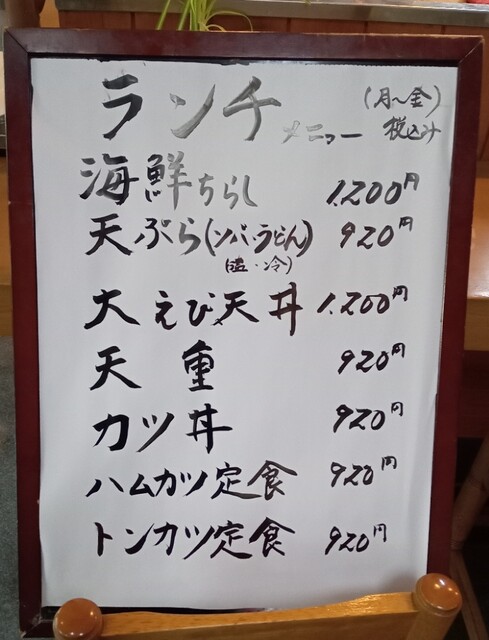 ランチメニュー (月〜金) 税込み
海鮮ちらし 1.200円
天ぷら(ソバ・うどん) 920円
(温・冷)
大えび天丼 1.200円
天重 920円
カツ丼 920円
ハムカツ定食 920円
トンカツ定食 920円